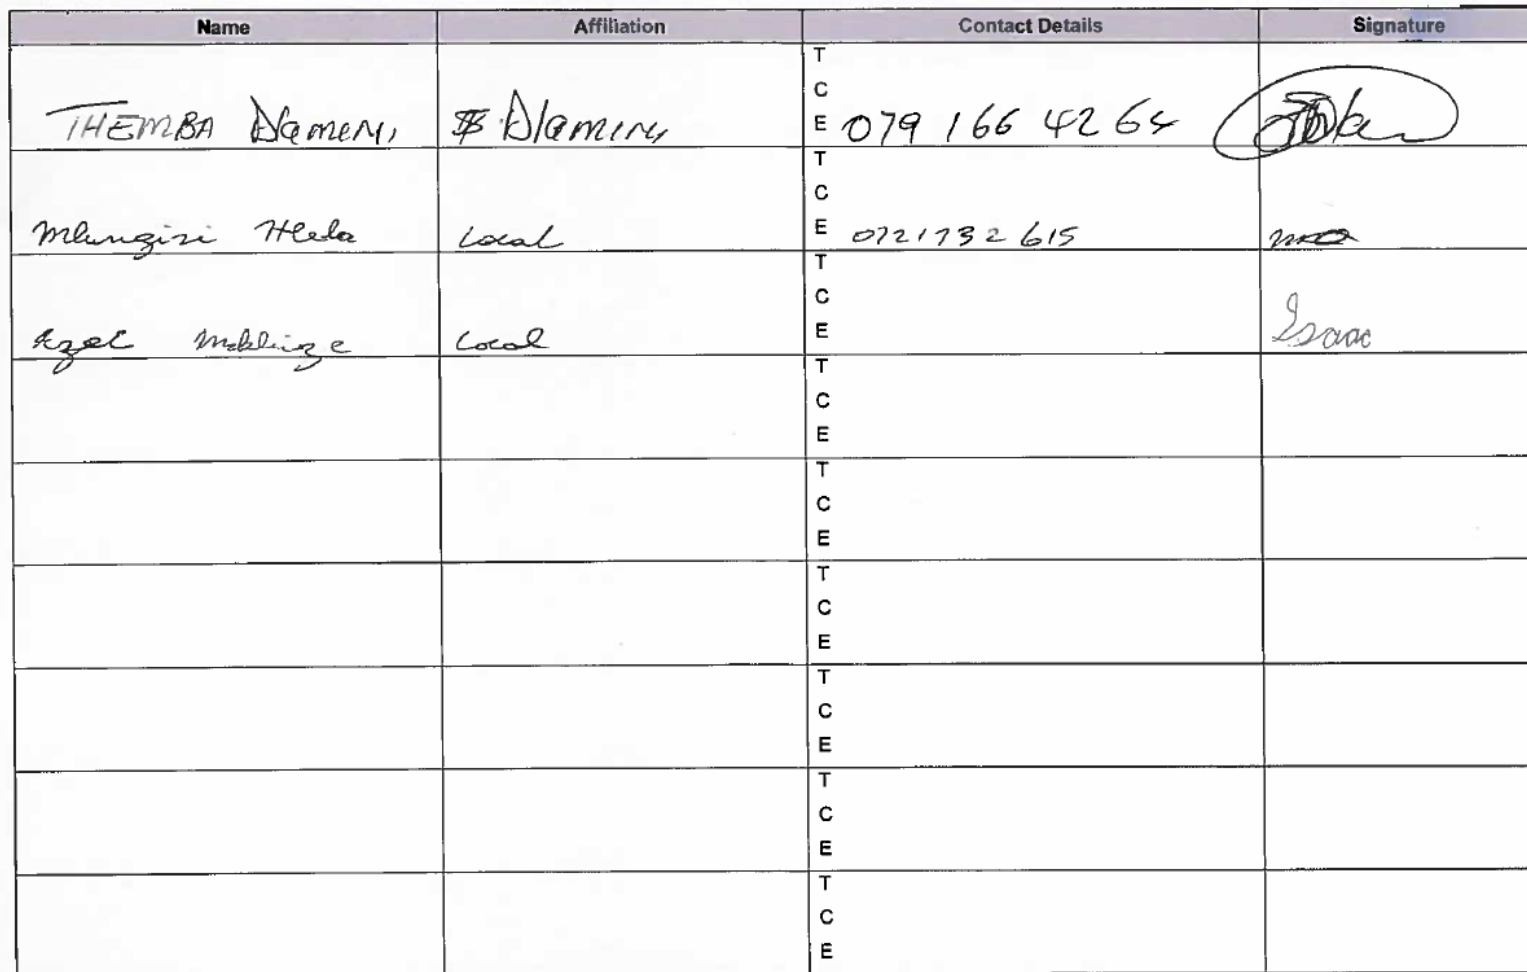 Name Affiliation Contact Details Signature
T
C
THEMBA Dlameni Dlamini E 079 166 4264
T
C
Mlungisi Hlela Local E 0721732615
T
C
Local E Isaac
T
C
E
T
C
E
T
C
E
T
C
E
T
C
E
T
C
E